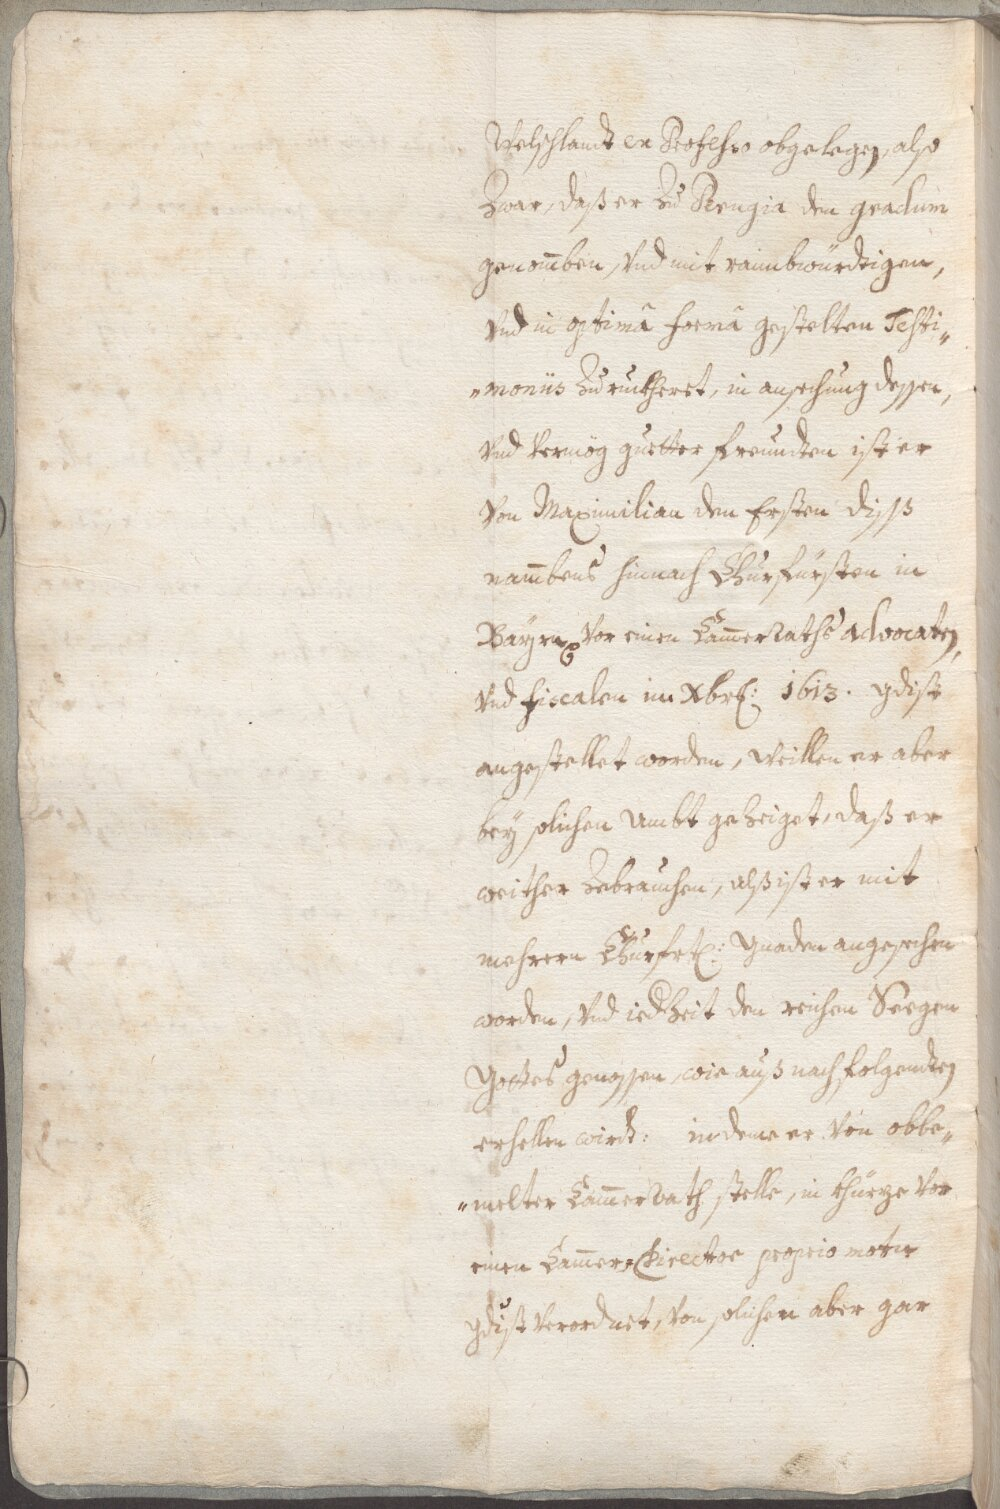 Welschlandt ex Professo obgelegen, also
Zwar, daß er Zu Perugia den gradum
genom̄ben, Vnd mit raimbwürdtigen,
Vnd in optimâ formâ gestelten Testi„
„moniis Zuruckhert, in ansechung dessen,
Vnd Vermög guetter freundten ist er
Von Maximilian den Ersten diss
nam̄bens hinnach Churfürsten in
Bayrn Vor einen Cam̄erRaths Advocaten,
Vnd fiscalen im Xbrl: 1613. gdist
angestellet worden, Weillen er aber
bey solichen Ambt geZeiget, daß er
weither Zebrauchen, alß ist er mit
mehrern Churfrtl: Gnaden angesechen
worden, Vnd iedZeit den reichen Seegen
Gottes genossen, wie auß nachfolgendten
erhellen wirdt: in deme er Von obbe„
„melter Cam̄erRath stelle, in khürze Vor
einen Cam̄er Director proprio motu
gdist Verordnet, Von solichen aber gar